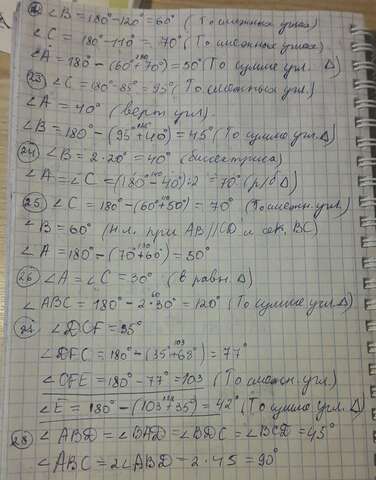 ∠B = 180° - 120° = 60° (То смежных углах)
∠C = 180° - 110° = 70° (То смежных углах)
∠A = 180° - (60° + 70°) = 50° (То сумме угл. Δ)
23 ∠C = 180° - 85° = 95° (То смежных угл.)
∠A = 40° (верт. угл.)
∠B = 180° - (95° + 40°) = 45° (То сумме угл. Δ)
24 ∠B = 2·20° = 40° (биссектриса)
∠A = ∠C = (180° - 40°):2 = 70° (р/б Δ)
25 ∠C = 180° - (60° + 50°) = 70° (То смежн. угл.)
∠B = 60° (н.л. при AB//CD и сек. BC)
∠A = 180° - (70° + 60°) = 50°
26 ∠A = ∠C = 30° (в равн. Δ)
∠ABC = 180° - 2·30° = 120° (То сумме угл. Δ)
∠DCF = 35°
∠DFC = 180° - (35° + 68°) = 77°
∠CFE = 180° - 77° = 103 (То смежн. угл.)
∠E = 180° - (103° + 35°) = 42° (То сумме угл. Δ)
28 ∠ABD = ∠BAD = ∠BDC = ∠BCD = 45°
∠ABC = 2∠ABD = 2·45 = 90°